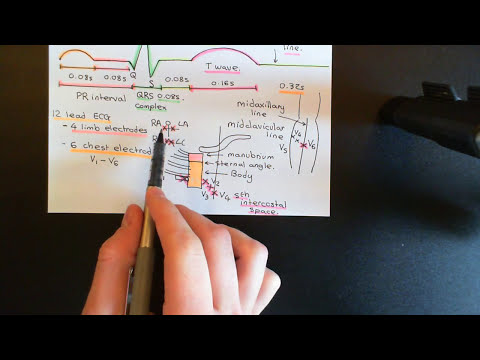 line.
Q
T wave.
0.08s 0.08s S 0.08s 0.16s 0.32s
PR interval QRS 0.08s
complex
midaxillary
line
12 lead ECG
RA LA
- 4 limb electrodes
midclavicular
line
V6
V5
LL
- 6 chest electrod
manubrium
sternal angle.
V1 - V6
Body
V2
V3 V4 5th
intercostal
space.